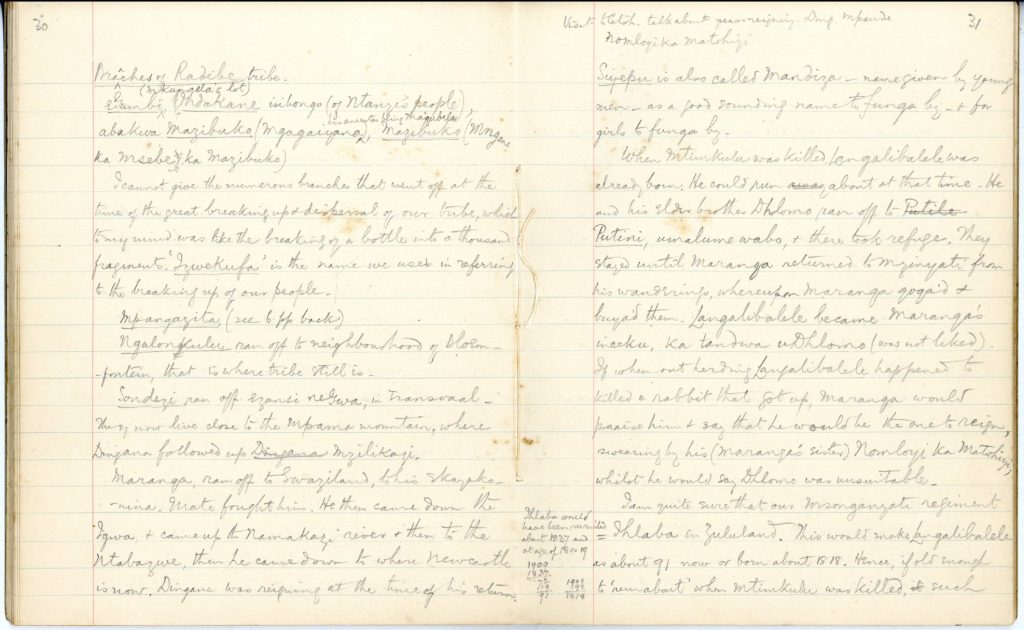 30
Branches of Radebe tribe.
(Mkungela's lot)
Egumbi, Dhdakane isibongo (of Ntanzi's people),
his ancestor being Mazibuko
abakwa Mazibuko (Mgagaiyana), Mazibuko (Mngane
ka Msebe, ka Mazibuko)
I cannot give the numerous branches that went off at the
time of the great breaking up & dispersal of our tribe, which
to my mind was like the breaking of a bottle into a thousand
fragments. 'Izwekufa' is the name we used in referring
to the breaking up of our people.
Mpangazita, (see 6 pp back)
Ngalonkulu ran off to neighbourhood of Bloem-
-fontein, that is where tribe still is.
Sondezi ran off ezansi ne Gwa, in Transvaal -
They now live close to the Mpama mountain, where
Dingana followed up Dingana Mzilikazi.
Maranga, ran off to Swaziland, to his ekazako-
-nina. Mate fought him. He then came down the
Igwa, & came up the Namakazi river & then to the
Ntabazwe, then he came down to where Newcastle
is now. Dingane was reigning at the time of his return.
Visit to Cetsh. talk about years reigning. Ding. Mpande
Nomloyi ka Matshiyi
31
Siyepu is also called Mandiza - name given by young
men - as a good sounding name to funga by - & for
girls to funga by.
When Mtimkulu was killed, Langalibalele was
already born. He could run away about at that time. He
and his elder brother Dhlomo ran off to Putile
Putini, umalume wabo, & there took refuge. They
stayed until Maranga returned to Mzinyati from
his wanderings, whereupon Maranga goqa'd &
buya'd them. Langalibalele became Maranga's
inceku, ka tandwa uDhlomo (was not liked).
If when out herding Langalibalele happened to
killed a rabbit that got up, Maranga would
praise him & say that he would be the one to reign,
swearing by his (Maranga's sister) Nomloyi ka Matshiyi,
whilst he would say Dhlomo was unsuitable.
I am quite sure that our Msonganyati regiment
= Dhlaba in Zululand. This would make Langalibalele
as about 91 now or born about 1818. Hence, if old enough
to 'run about' when Mtimkulu was killed, it such
Dhlaba would
have been recruited
about 1837 and
at age of 18 or 19
1909
1837
72
19
91
1909
91
1818